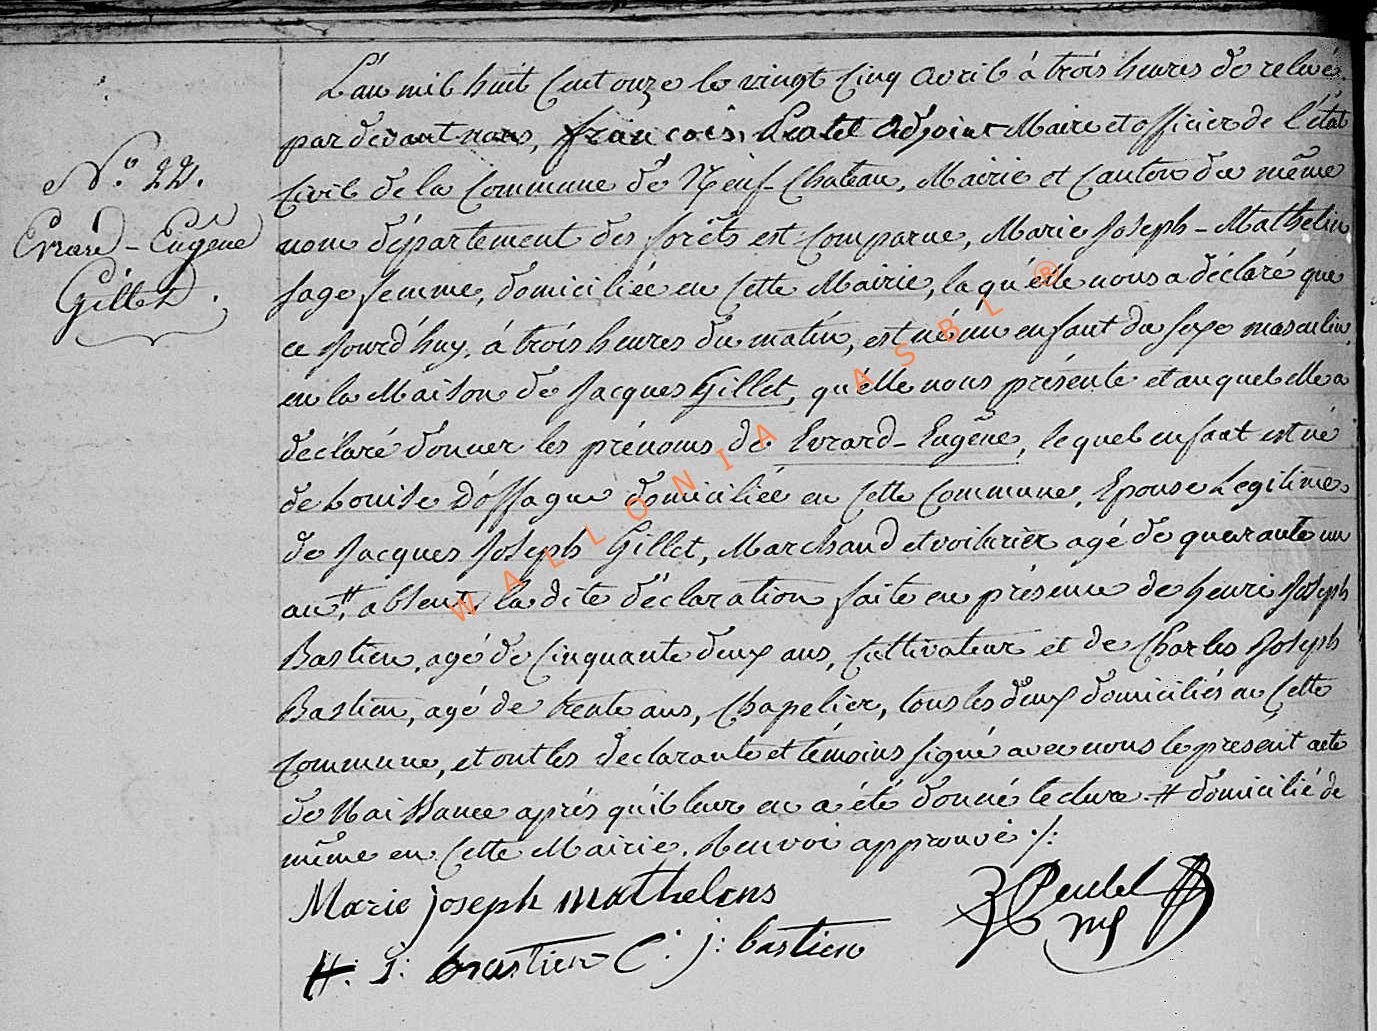 L'an mil huit Cent onze le vingt Cinq avril à trois heures de relevé
par devant nous, françois adjoint Maire et officier de l'état
Civil de la Commune de Neuf-Chateau, Mairie et Canton du même
nom département des forêts est comparue, Marie Joseph-Mathelin
sage femme, domiciliée en cette Mairie, laqu'elle nous a déclaré que
ce Jourd'huy, à trois heures du matin, est né un enfant du sexe masculin
en la Maison de Jacques Gillet, qu'elle nous présente et auquel elle a
déclaré donner les prénoms de Evrard-Eugêne, lequel enfant est né
de Louise D'offagne domiciliée en cette Commune, Epouse Legitime
de Jacques Joseph Gillet, Marchand et voiturier agé de quarante un
an # absent, la dite déclaration faite en présence de henri Joseph
Bastien, agé de Cinquante deux ans, Cultivateur et de Charles Joseph
Bastien, agé de trente ans, Chapelier, tous les deux domiciliés en Cette
Commune, et ont les declarante et témoins signé avec nous le present acte
de Naissance après qu'il leur en a été donné lecture. # domicilié de
même en Cette Mairie. Renvoi approuvé ./.
Marie joseph mathelins
H: J: bastien C: j: bastien
N.o 22.
Evrard-Eugêne
Gillet.
WALLONIA ASBL ®